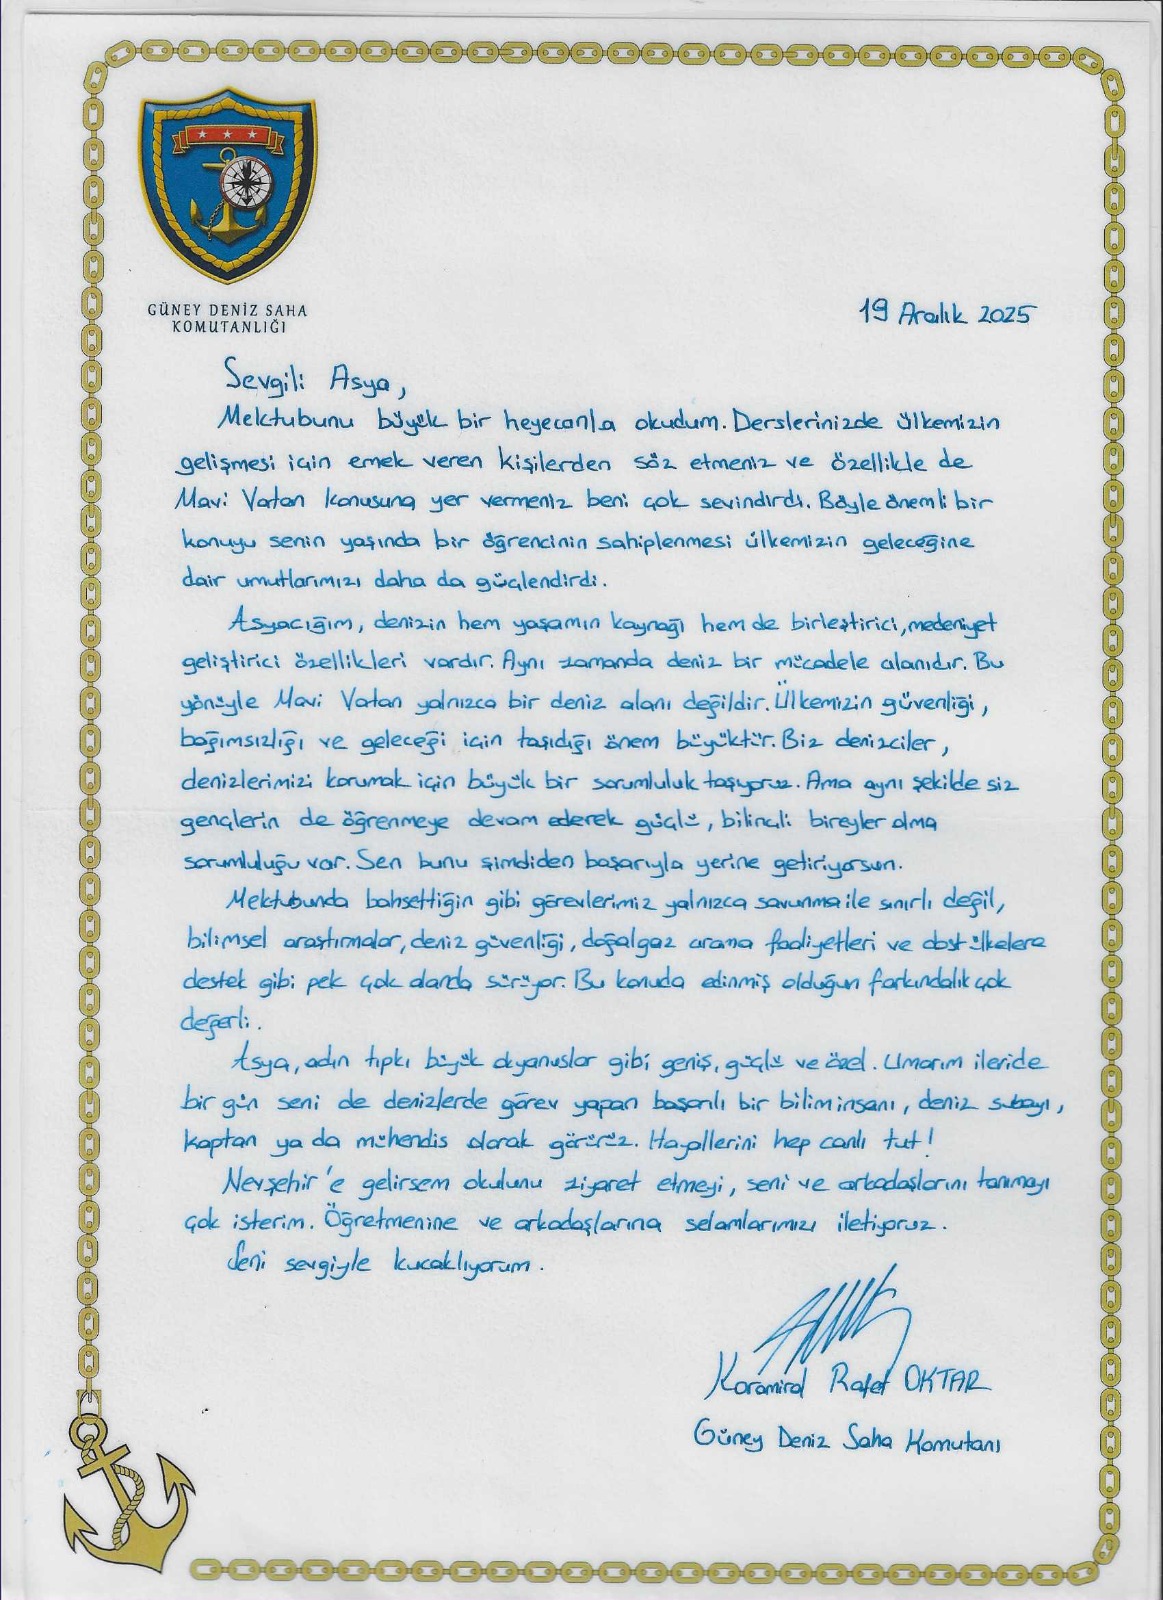 GÜNEY DENİZ SAHA
KOMUTANLIĞI
19 Aralık 2025
Sevgili Asya,
Mektubunu büyük bir heyecanla okudum. Derslerinizde ülkemizin
gelişmesi için emek veren kişilerden söz etmeniz ve özellikle de
Mavi Vatan konusuna yer vermeniz beni çok sevindirdi. Böyle önemli bir
konuyu senin yaşında bir öğrencinin sahiplenmesi ülkemizin geleceğine
dair umutlarımızı daha da güçlendirdi.
Asyacığım, denizin hem yaşamın kaynağı hem de birleştirici, medeniyet
geliştirici özellikleri vardır. Aynı zamanda deniz bir mücadele alanıdır. Bu
yönüyle Mavi Vatan yalnızca bir deniz alanı değildir. Ülkemizin güvenliği,
bağımsızlığı ve geleceği için taşıdığı önem büyüktür. Biz denizciler,
denizlerimizi korumak için büyük bir sorumluluk taşıyoruz. Ama aynı şekilde siz
gençlerin de öğrenmeye devam ederek güçlü, bilinçli bireyler olma
sorumluluğu var. Sen bunu şimdiden başarıyla yerine getiriyorsun.
Mektubunda bahsettiğin gibi görevlerimiz yalnızca savunma ile sınırlı değil,
bilimsel araştırmalar, deniz güvenliği, doğalgaz arama faaliyetleri ve dost ülkelere
destek gibi pek çok alanda sürüyor. Bu konuda edinmiş olduğun farkındalık çok
değerli.
Asya, adın tıpkı büyük okyanuslar gibi geniş, güçlü ve özel. Umarım ileride
bir gün seni de denizlerde görev yapan başarılı bir bilim insanı, deniz subayı,
kaptan ya da mühendis olarak görürüz. Hayallerini hep canlı tut!
Nevşehir'e gelirsem okulunu ziyaret etmeyi, seni ve arkadaşlarını tanımayı
çok isterim. Öğretmenine ve arkadaşlarına selamlarımızı iletiyoruz.
Seni sevgiyle kucaklıyorum.
Koramiral Rafet OKTAR
Güney Deniz Saha Komutanı